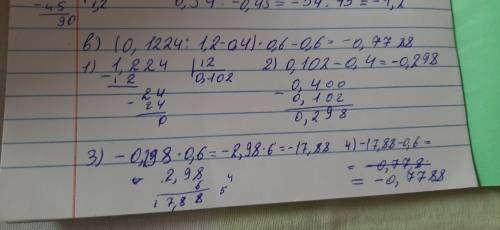 -45 1,2 0,54 : -0,45 = -54:45 = -1,2
90
в) (0,1224 : 1,2-0,4)·0,6-0,6=-0,7788
1) 1,224 |12 2) 0,102-0,4=-0,298
-12 0,102 - 0,400
-24 0,102
24 0,298
0
3) -0,298·0,6=-2,98·6=-17,88 4) -17,88-0,6=
2,98 = -0,778
6 4
17,88 5 = -0,7788